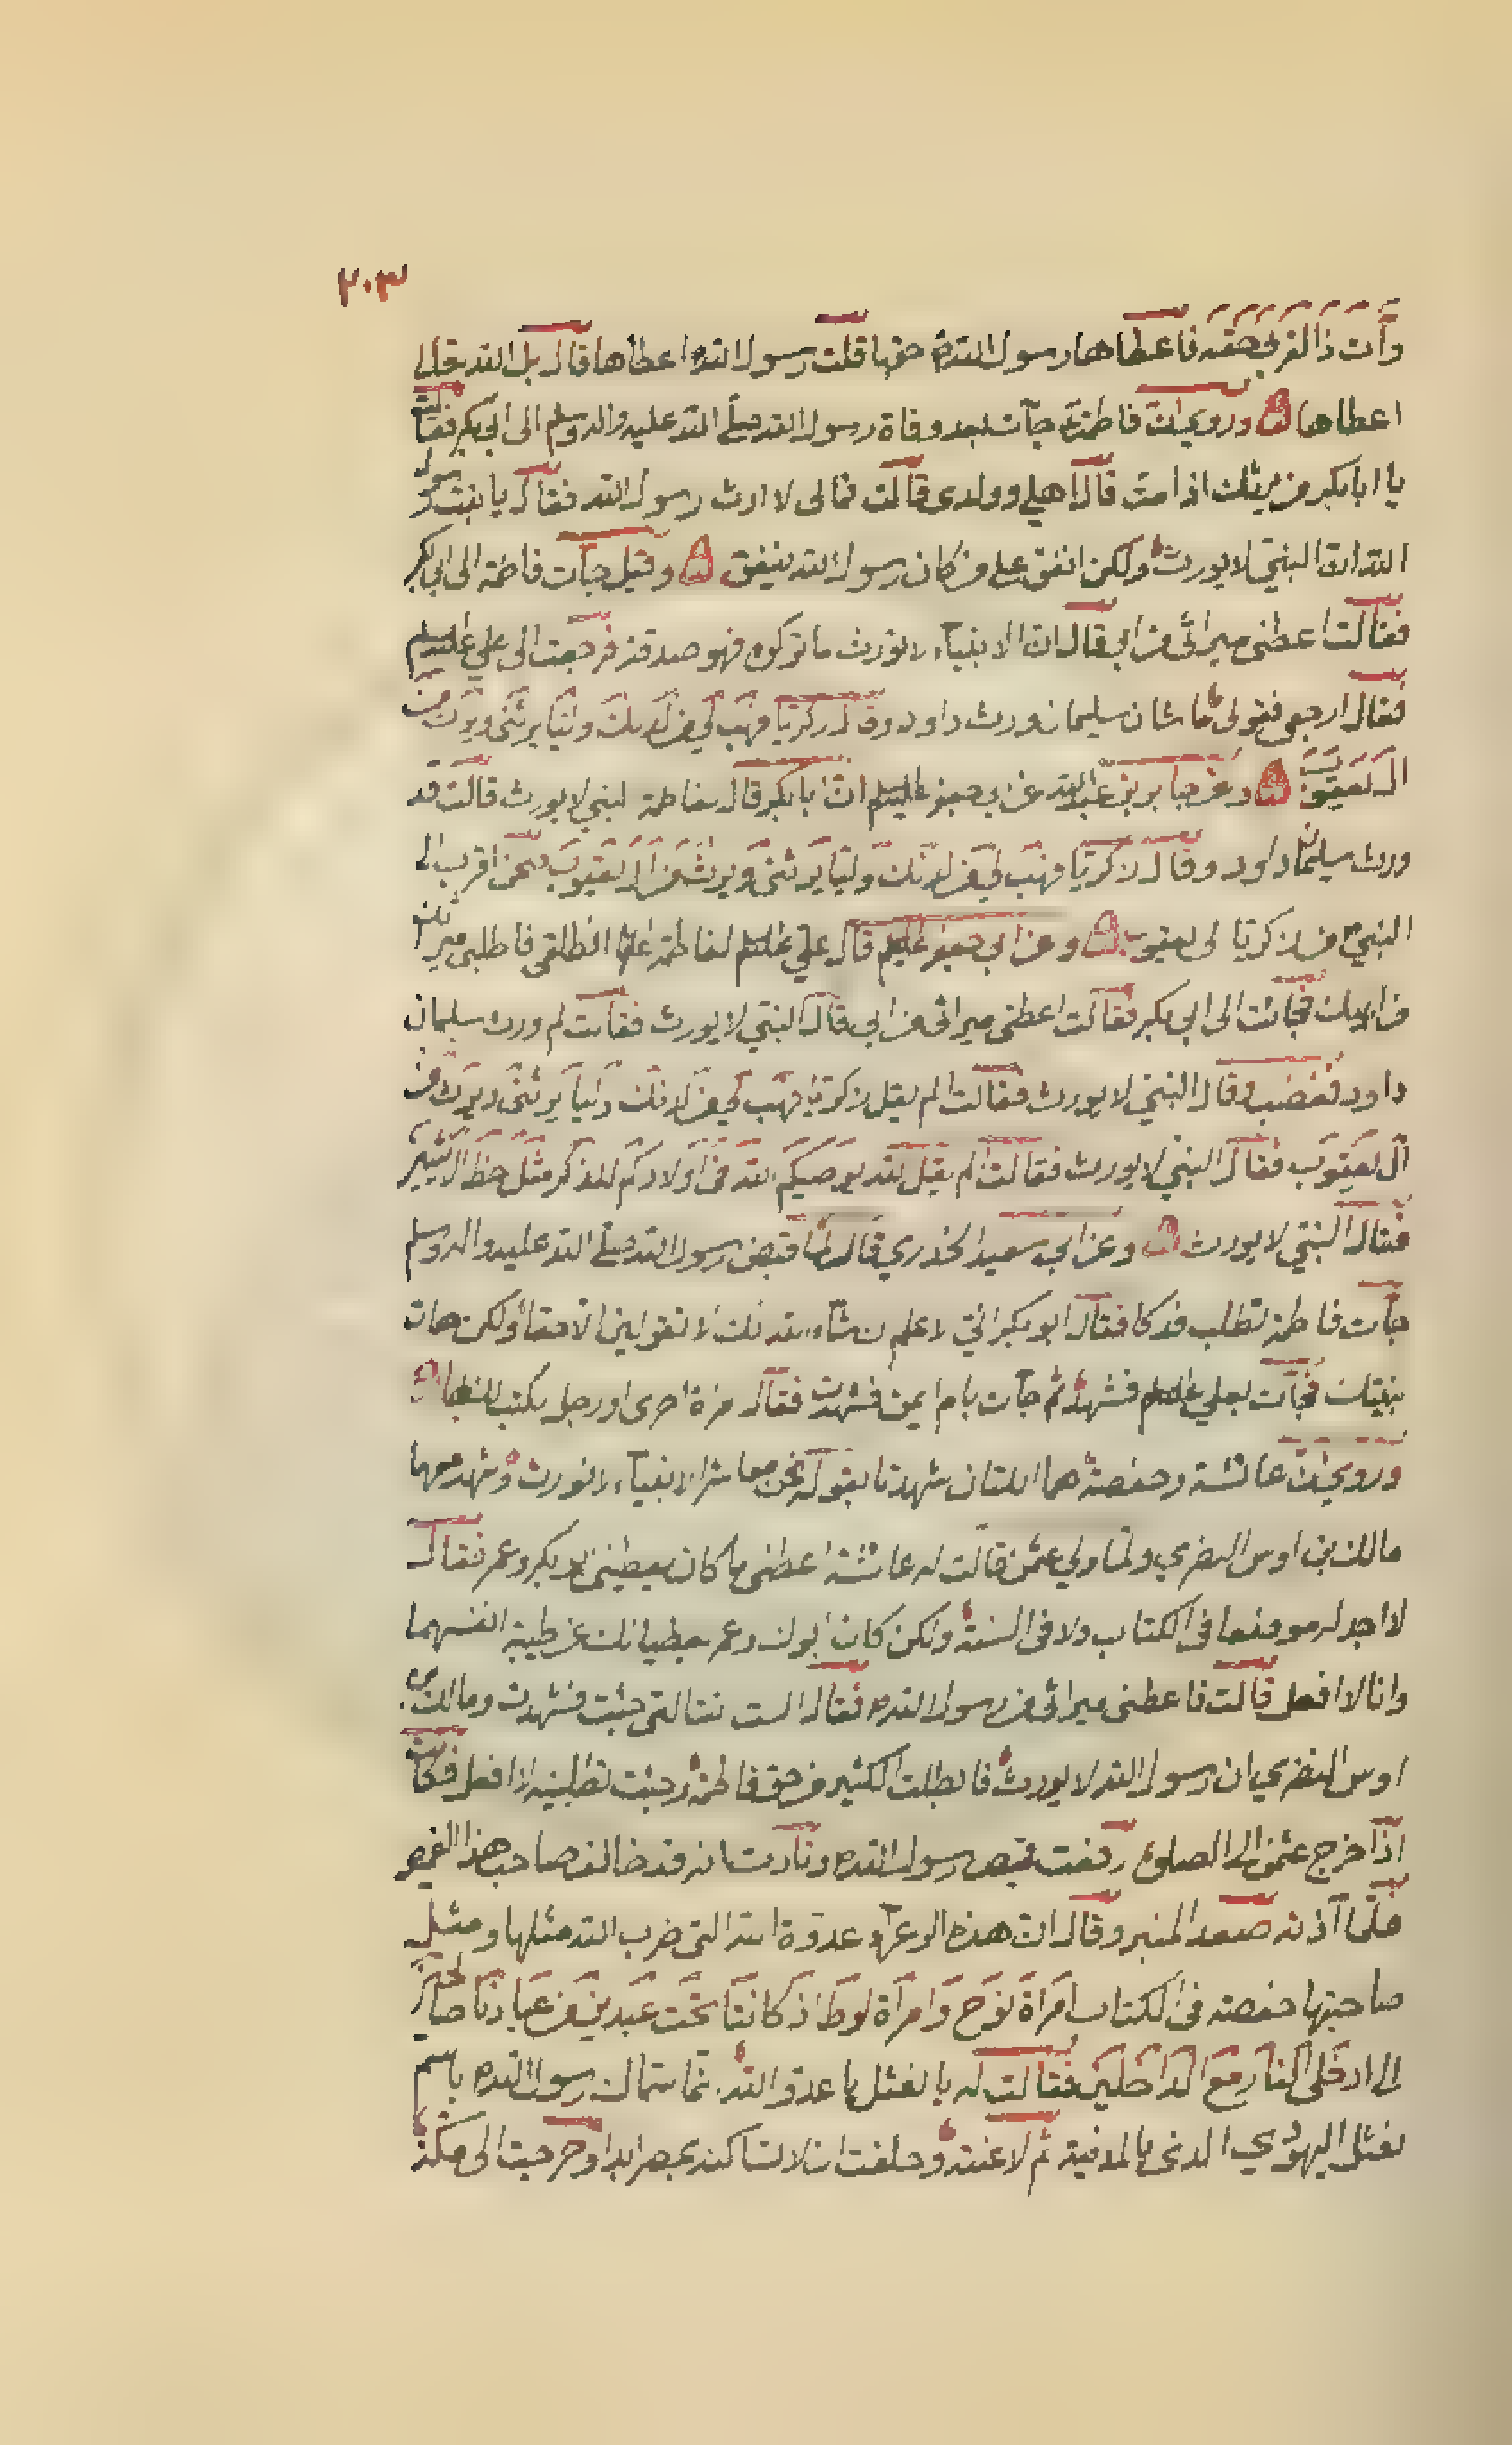 ٢٠٣
وآت ذا القربى حقه فاعطاها رسول الله حقها قلت رسول الله اعطاها قال بل الله تعالى
اعطاها وروي ان فاطمة جآت بعد وفاة رسول الله صلى الله عليه واله وسلم الى ابي بكر فقالت
يا ابا بكر من يرثك اذا مت قال اهلي وولدى قالت فمالى لا ارث رسول الله فقال يا بنت رسول
الله ان النبي لا يورث ولكن انفق على من كان رسول الله ينفق وقيل جآت فاطمة الى ابي بكر
فقالت اعطنى ميراثى من ابي قال ان الانبيآء لا تورث ما تركوه فهو صدقة فرجعت الى علي عليه السلم
فقال ارجعى فقولى ما شان سليمان ورث داود وقال زكريا فهب لي من لدنك وليا يرثنى ويرث من
ال يعقوب وعن جابر بن عبد الله عن ابى جعفر عليه السلم ان ابا بكر قال لفاطمة النبي لا يورث قالت قد
ورث سليمان داود وقال زكريا فهب لي من لدنك وليا يرثنى ويرث من ال يعقوب فنحن اقرب الى
النبي من زكريا الى يعقوب وعن ابى جعفر عليه السلم قال علي عليه السلم لفاطمة عليها انطلقى فاطلبى ميراثك
من ابيك فجائت الى ابي بكر فقالت اعطنى ميراثى من ابي قال النبي لا يورث فقالت لم ورث سليمان
داود فغضب وقال النبي لا يورث فقالت الم يقل زكريا فهب لي من لدنك وليا يرثنى ويرث من
آل يعقوب فقال النبي لا يورث فقالت الم يقل الله يوصيكم الله في اولادكم للذكر مثل حظ الانثيين
فقال النبي لا يورث وعن ابى سعيد الخدري قال لما قبض رسول الله صلى الله عليه واله وسلم
جآت فاطمة تطلب فدكا فقال ابو بكر انى لا علم ان شآء الله انك لا تقولين الا حقا ولكن هات
بينتك فجآت بعلي عليه السلم فشهد ثم جآت بام ايمن فشهدت فقال امراة اخرى او رجل يكتب لك
وروي ان عائشة وحفصة هما اللتان شهدتا بقوله نحن معاشر الانبيآء لا نورث وشهد معهما
مالك بن اوس النضري ولما ولي عثمن قالت له عائشة اعطنى ما كان يعطينى ابو بكر وعمر فقال
لا اجد له موضعا فى الكتاب ولا فى السنة ولكن كان ابوك وعمر يعطيانك عن طيبة انفسهما
وانا لا افعل قالت فاعطنى ميراثى من رسول الله فقال الست انت التى جئت فشهدت ومالك بن
اوس النضري ان رسول الله لا يورث فابطلت الكثير من حق فاطمة وجئت تطلبينه لا افعل فكانت
اذا خرج عثمن الى الصلوة رفعت قميص رسول الله ونادت انه قد خالف صاحب هذا القميص
فلما آذته صعد المنبر وقال ان هذه الزعراء عدوة الله التى ضرب الله مثلها ومثل
صاحبتها حفصه فى الكتاب امراة نوح وامراة لوط اذ كانتا تحت عبدين من عبادنا صالحين
الى ادخلى النار مع الداخلين فقالت له يا نعثل يا عدو الله انما سماك رسول الله باسم
نعثل اليهودي الذى باليمن ثم لاعنته وحلفت ان لا تساكنه بمصر ابدا وخرجت الى مكة